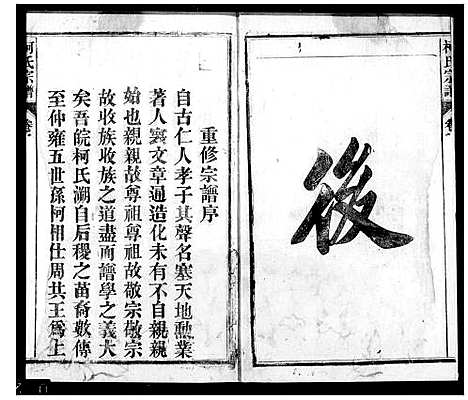 柯氏宗譜
後
重修宗譜序
自古仁人孝子其聲名塞天地勲業
著人寰文章通造化未有不自親親
始也親親故尊祖尊祖故敬宗敬宗
故收族收族之道盡而譜學之義大
矣吾皖柯氏溯自后稷之苗裔數傳
至仲雍五世孫柯相仕周共王爲上
柯氏宗譜